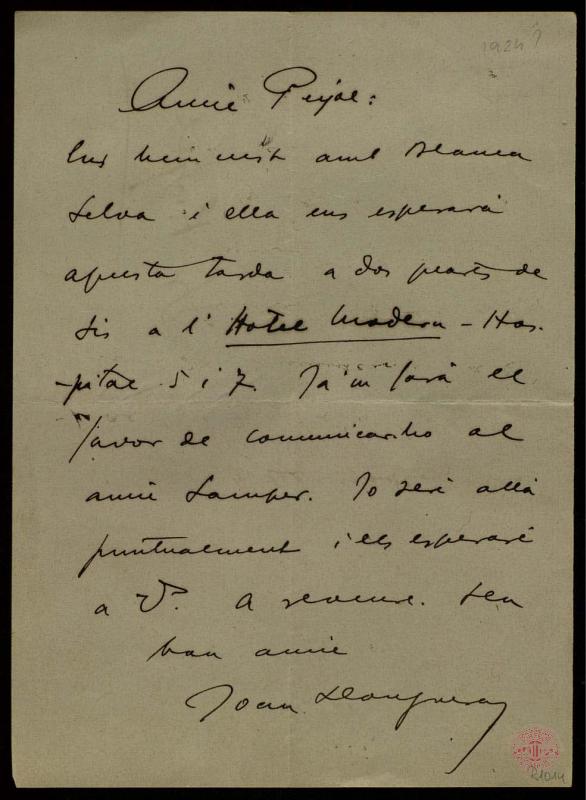 1924?
Amic Pujol:
Ens hem vist amb Blanca
Selva i ella ens esperarà
aquesta tarda a dos quarts de
sis a l'Hotel Modern - Hos-
-pital 5 i 7. Ja'm farà el
favor de comunicarho al
amic Samper. Jo seré allà
puntualment i els esperaré
a V. A reveure. Seu
bon amic
Joan Llongueras
R1014